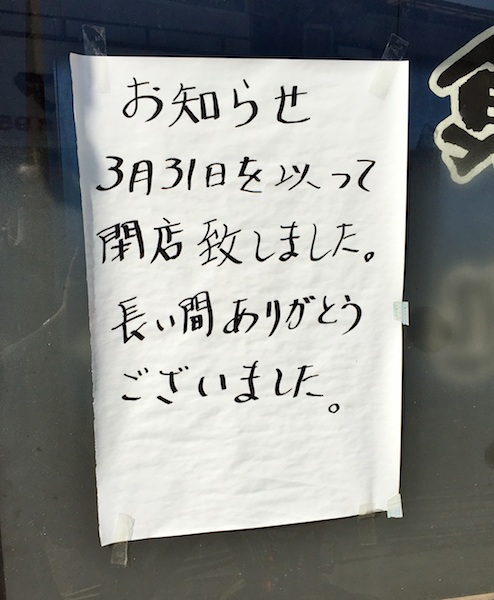 お知らせ
3月31日を以って
閉店致しました。
長い間ありがとう
ございました。